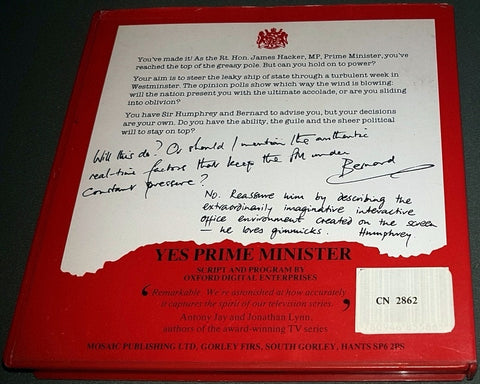 You've made it! As the Rt. Hon. James Hacker, MP, Prime Minister, you've
reached the top of the greasy pole. But can you hold on to power?
Your aim is to steer the leaky ship of state through a turbulent week in
Westminster. The opinion polls show which way the wind is blowing:
will the nation present you with the ultimate accolade, or are you sliding
into oblivion?
You have Sir Humphrey and Bernard to advise you, but your decisions
are your own. Do you have the ability, the guile and the sheer political
will to stay on top?
Will this do? Or should I mention the authentic
real-time factors that keep the PM under
constant pressure?
Bernard
No. Reassure him by describing the
extraordinarily imaginative interactive
office environment created on the screen
— he loves gimmicks. Humphrey
YES PRIME MINISTER
SCRIPT AND PROGRAM BY
OXFORD DIGITAL ENTERPRISES
‘Remarkable. We're astonished at how accurately
it captures the spirit of our television series.’
Antony Jay and Jonathan Lynn,
authors of the award-winning TV series
CN 2862
MOSAIC PUBLISHING LTD, GORLEY FIRS, SOUTH GORLEY, HANTS SP6 2PS